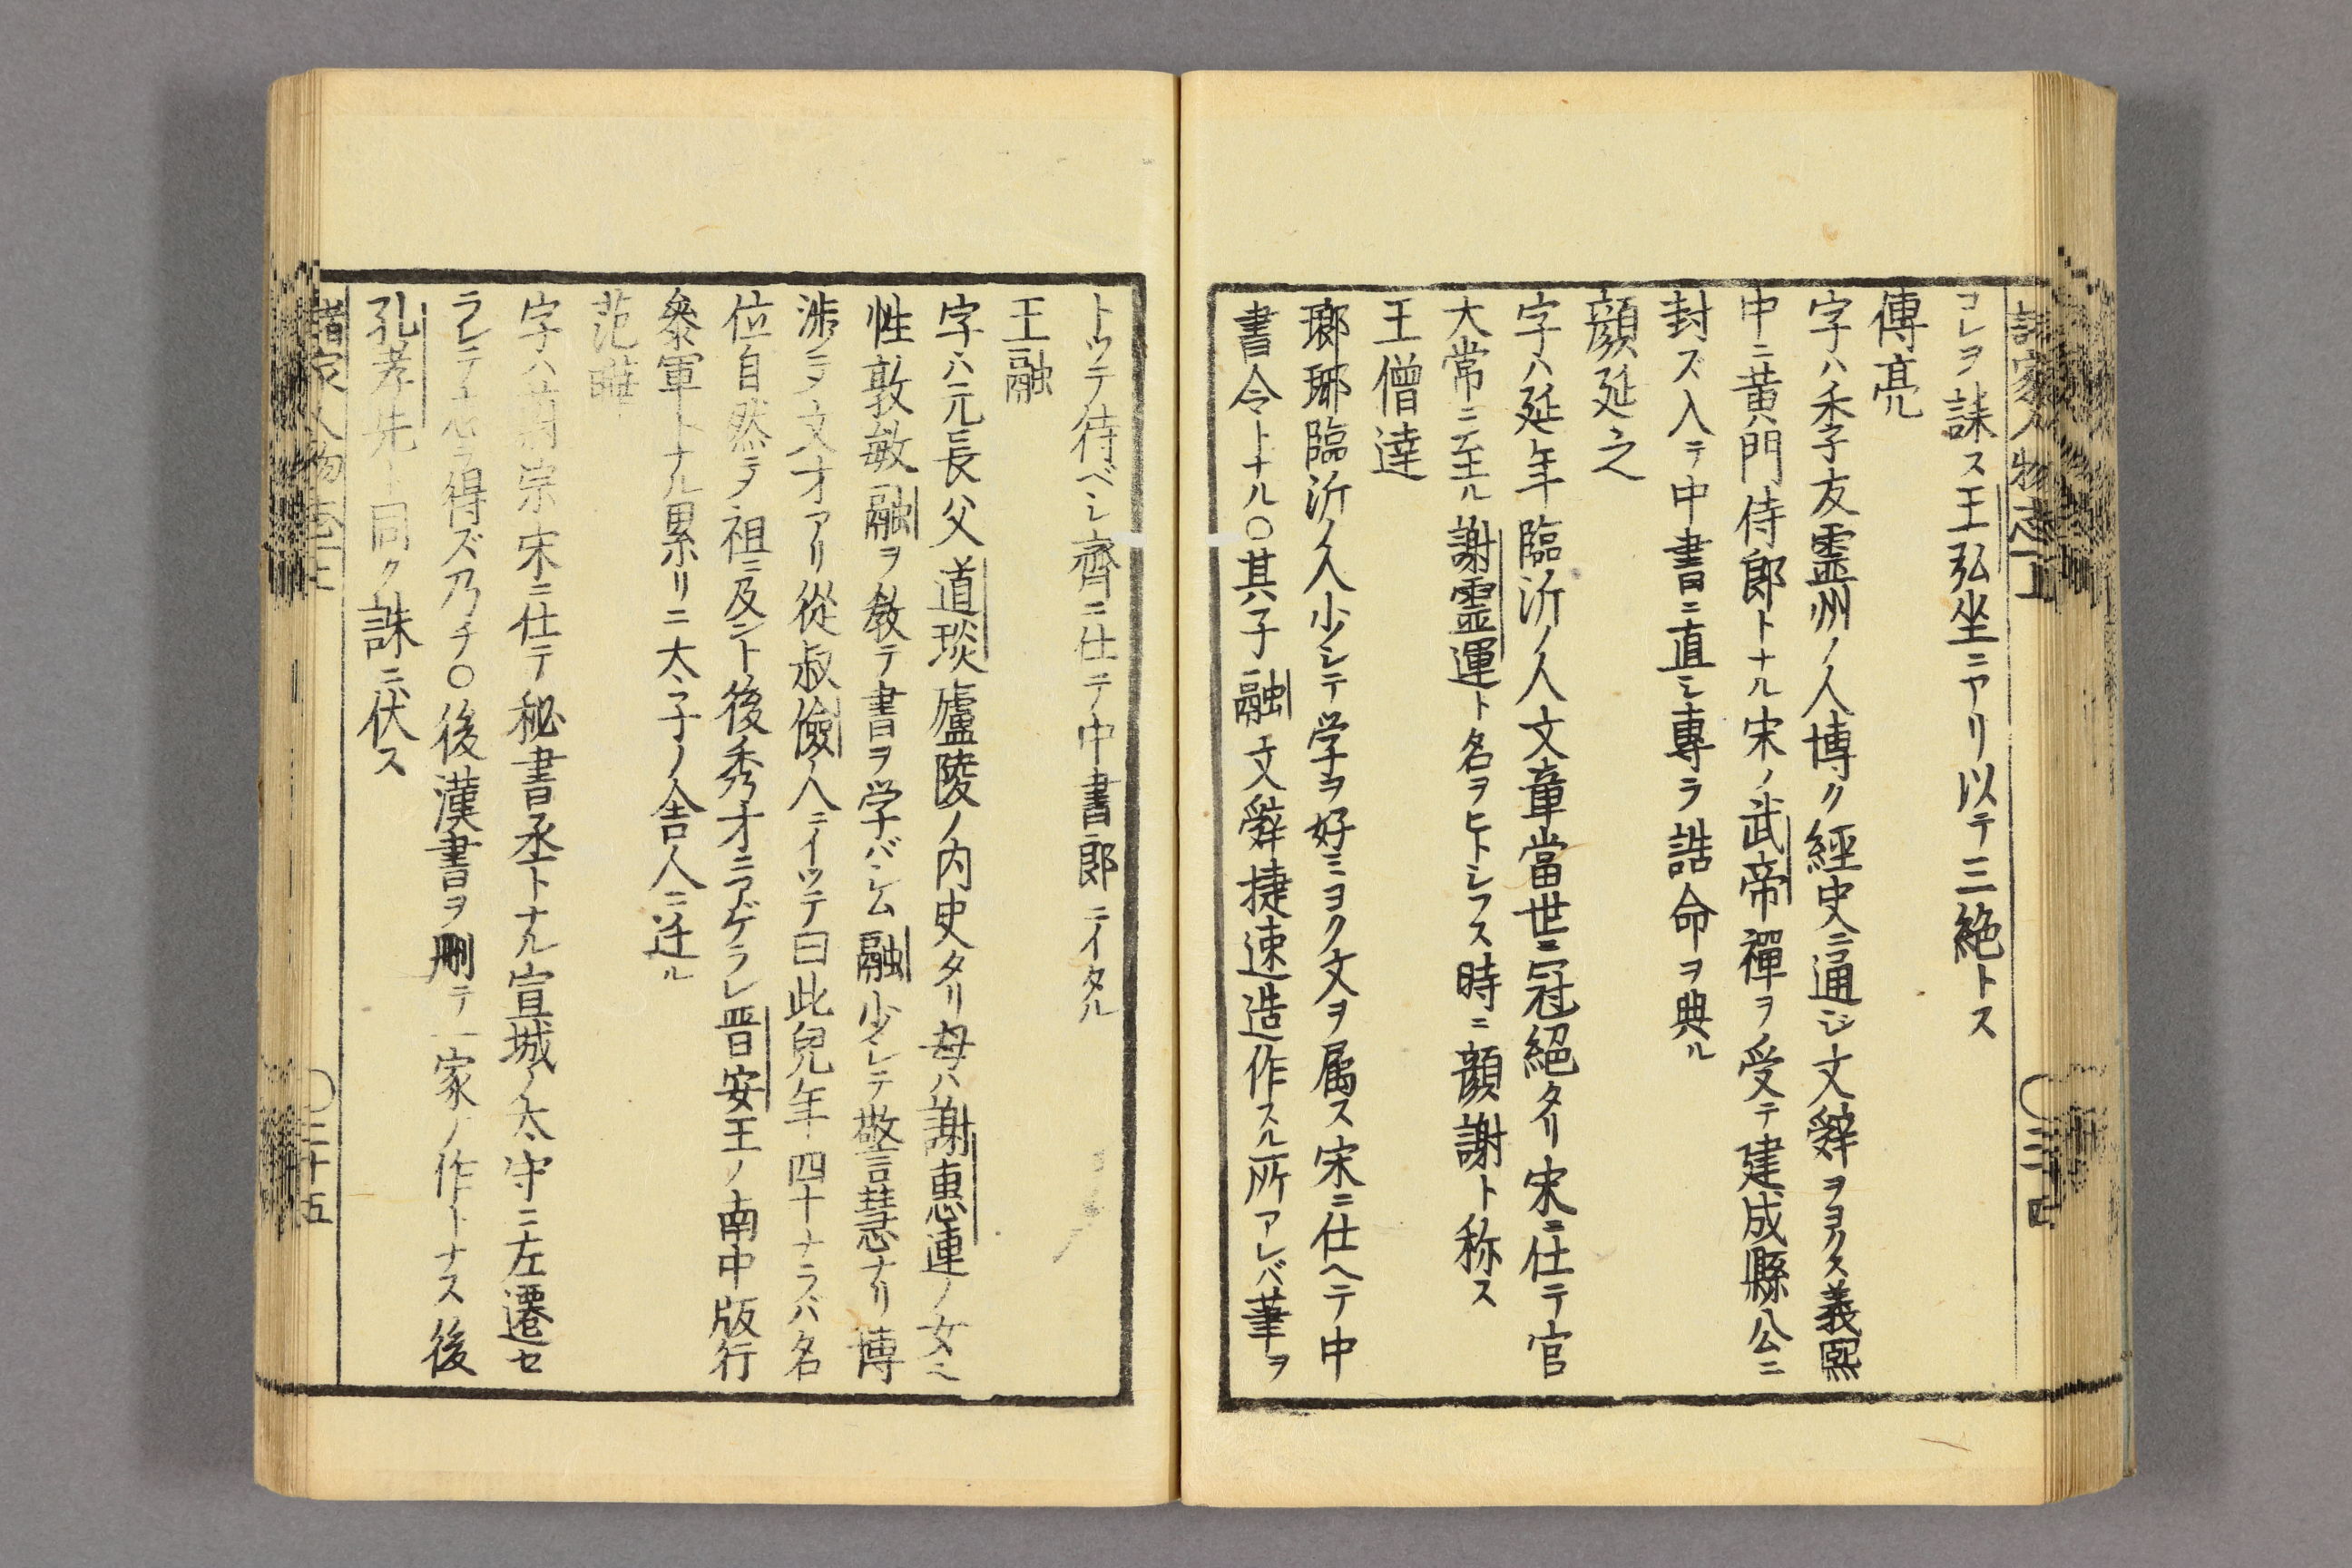 コレヲ誅ス王弘坐ニアリ以テ三絶トス
傅亮
字ハ禾子友靈州ノ人博ク經史ニ通ジ文辭ヲヨクス義熙
中ニ黄門侍郎トナル宋ノ武帝禪ヲ受テ建成縣公ニ
封ズ入テ中書ニ直シ専ラ誥命ヲ典ル
顔延之
字ハ延年臨沂ノ人文章當世ニ冠絕タリ宋ニ仕テ官
大常ニ至ル謝霊運ト名ヲヒトシフス時ニ顔謝ト称ス
王僧達
瑯琊臨沂ノ人少シテ学ヲ好ミヨク文ヲ属ス宋ニ仕ヘテ中
書令トナル〇其子融文辭捷速造作スル所アレバ筆ヲ
トツテ待ベシ齊ニ仕テ中書郎ニイタル
王融
字ハ元長父道琰廬陵ノ内史タリ母ハ謝惠連ノ女ミ
性敦敏融ヲ教テ書ヲ学バシム融少シテ警慧ナリ博
渉ニテ文才アリ從叔儉人ニイツテ曰此兒年四十ナラバ名
位自然ラ祖ニ及ント後秀才ニアゲラレ晋安王ノ南中版行
叅軍トナル累リニ太子ノ舎人ニ迁ル
范曄
字ハ蔚宗宋ニ仕テ秘書丞トナル宣城ノ太守ニ左遷セ
ラレテ志ヲ得ズ乃チ〇後漢書ヲ刪テ一家ノ作トナス後
孔孝先ト同ク誅ニ伏ス
三十五